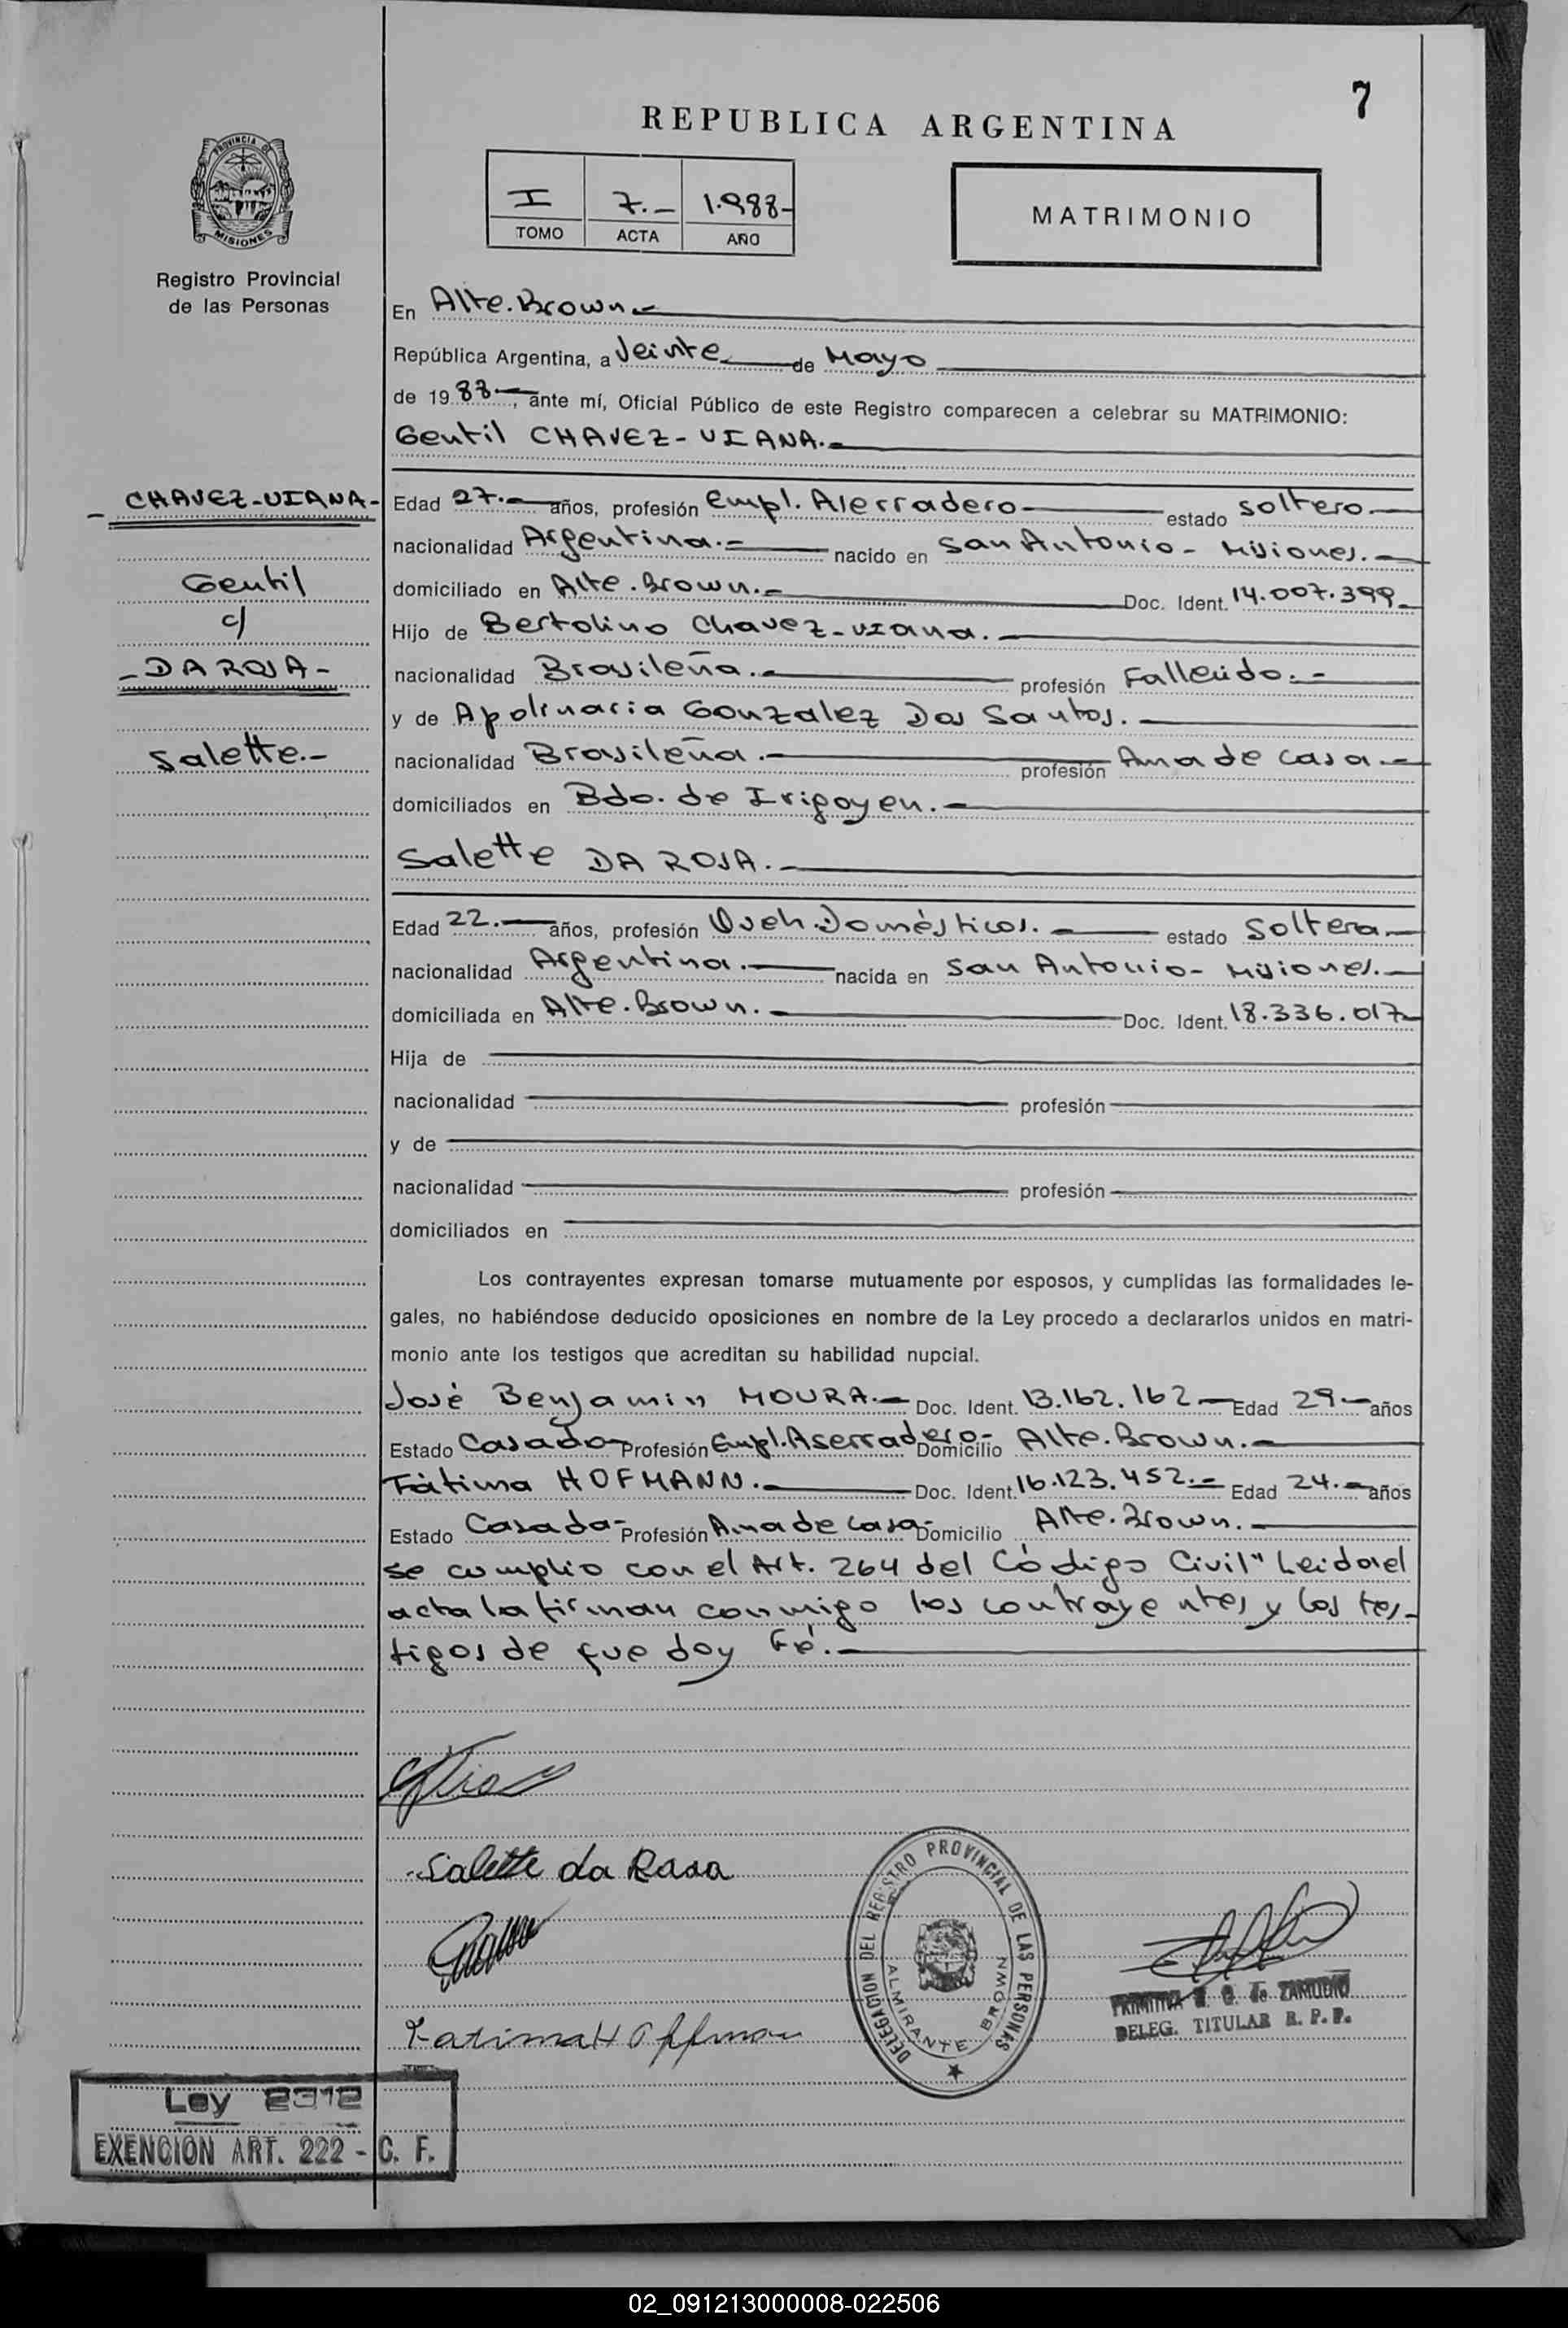 7
REPUBLICA ARGENTINA
PROVINCIA DE
MISIONES
I 7.- 1.988-
TOMO ACTA AÑO
MATRIMONIO
Registro Provincial
de las Personas
En Alte. Brown.-
República Argentina, a Veinte de Mayo
de 1988-, ante mí, Oficial Público de este Registro comparecen a celebrar su MATRIMONIO:
Gentil CHAVEZ-VIANA.-
- CHAVEZ-VIANA-
Gentil
c/
-DA ROSA-
Salette.-
Edad 27.- años, profesión Empl. Aserradero- estado soltero.-
nacionalidad Argentina.- nacido en San Antonio- Misiones.-
domiciliado en Alte. Brown.- Doc. Ident. 14.007.399-
Hijo de Bertolino Chavez-viana.-
nacionalidad Brasileña.- profesión Fallecido.-
y de Apolinaria Gonzalez Dos Santos.-
nacionalidad Brasileña.- profesión Ama de casa.-
domiciliados en Bdo. de Irigoyen.-
Salette DA ROSA.-
Edad 22.- años, profesión Queh. Domésticos.- estado Soltera.-
nacionalidad Argentina.- nacida en San Antonio- Misiones.-
domiciliada en Alte. Brown.- Doc. Ident. 18.336.017-
Hija de
nacionalidad profesión
y de
nacionalidad profesión
domiciliados en
Los contrayentes expresan tomarse mutuamente por esposos, y cumplidas las formalidades le-
gales, no habiéndose deducido oposiciones en nombre de la Ley procedo a declararlos unidos en matri-
monio ante los testigos que acreditan su habilidad nupcial.
José Benjamin MOURA.- Doc. Ident. 13.162.162- Edad 29- años
Estado Casado- Profesión Empl. Aserradero- Domicilio Alte. Brown.-
Fátima HOFMANN.- Doc. Ident. 16.123.452.- Edad 24.- años
Estado Casada- Profesión Ama de casa- Domicilio Alte. Brown.-
se cumplio con el Art. 264 del Código Civil" Leida el
acta la firman conmigo los contrayentes y los tes-
tigos de que doy Fé.-
Salette da Rosa
Fatima Hoffman
DELEGACION DEL REGISTRO PROVINCIAL DE LAS PERSONAS
ALMIRANTE BROWN
PRIMITIVA de ZAMUDIO
DELEG. TITULAR R. P. P.
Ley 2312
EXENCION ART. 222 - C. F.
02_091213000008-022506